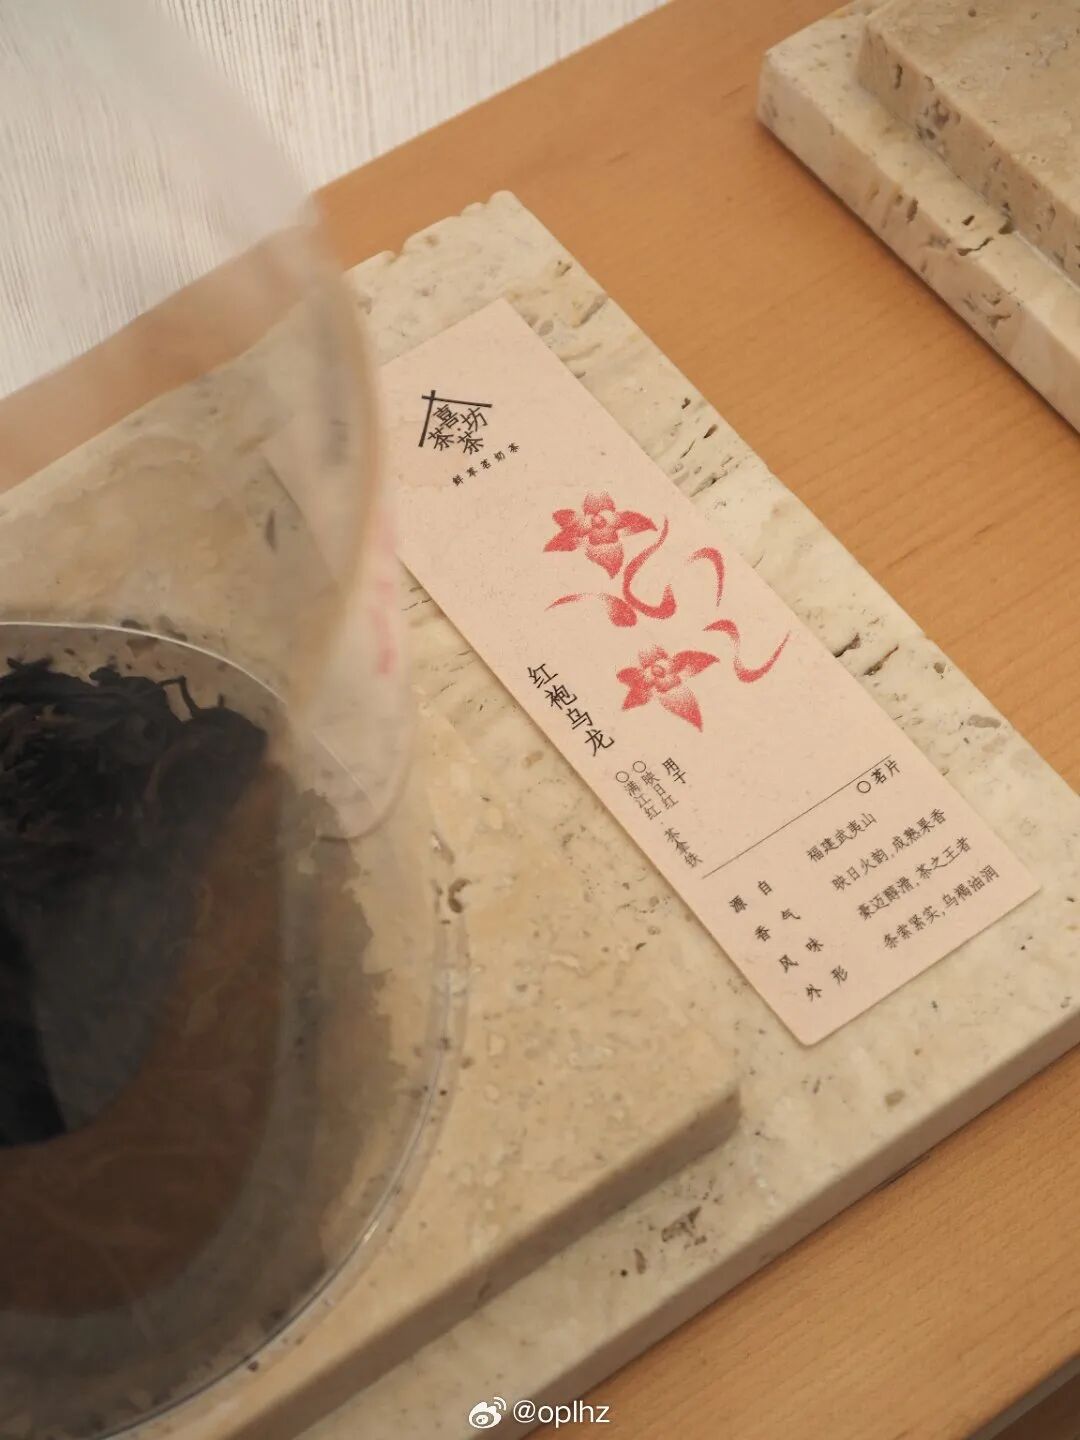 喜茶·茶坊
鲜萃茗奶茶
红袍乌龙
用于
○映日红
○满江红·茶拿铁
○茗片
源自 福建武夷山
香气 映日火韵,成熟果香
风味 豪迈醇滑,茶之王者
外形 条索紧实,乌褐油润
@oplhz